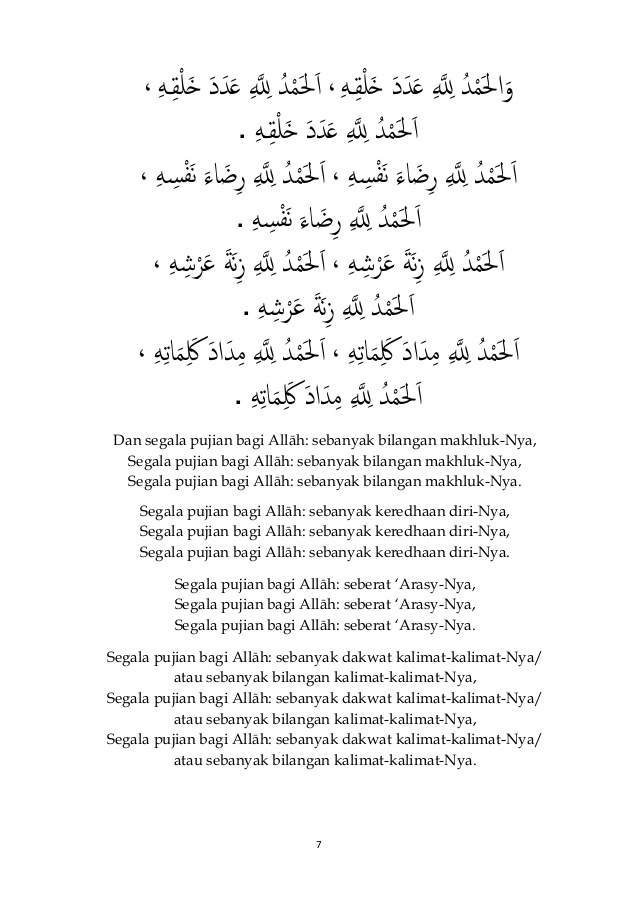 وَالْحَمْدُ لِلَّهِ عَدَدَ خَلْقِهِ ، اَلْحَمْدُ لِلَّهِ عَدَدَ خَلْقِهِ ،
اَلْحَمْدُ لِلَّهِ عَدَدَ خَلْقِهِ .
اَلْحَمْدُ لِلَّهِ رِضَاءَ نَفْسِهِ ، اَلْحَمْدُ لِلَّهِ رِضَاءَ نَفْسِهِ ،
اَلْحَمْدُ لِلَّهِ رِضَاءَ نَفْسِهِ .
اَلْحَمْدُ لِلَّهِ زِنَةَ عَرْشِهِ ، اَلْحَمْدُ لِلَّهِ زِنَةَ عَرْشِهِ ،
اَلْحَمْدُ لِلَّهِ زِنَةَ عَرْشِهِ .
اَلْحَمْدُ لِلَّهِ مِدَادَ كَلِمَاتِهِ ، اَلْحَمْدُ لِلَّهِ مِدَادَ كَلِمَاتِهِ ،
اَلْحَمْدُ لِلَّهِ مِدَادَ كَلِمَاتِهِ .
Dan segala pujian bagi Allāh: sebanyak bilangan makhluk-Nya,
Segala pujian bagi Allāh: sebanyak bilangan makhluk-Nya,
Segala pujian bagi Allāh: sebanyak bilangan makhluk-Nya.
Segala pujian bagi Allāh: sebanyak keredhaan diri-Nya,
Segala pujian bagi Allāh: sebanyak keredhaan diri-Nya,
Segala pujian bagi Allāh: sebanyak keredhaan diri-Nya.
Segala pujian bagi Allāh: seberat ‘Arasy-Nya,
Segala pujian bagi Allāh: seberat ‘Arasy-Nya,
Segala pujian bagi Allāh: seberat ‘Arasy-Nya.
Segala pujian bagi Allāh: sebanyak dakwat kalimat-kalimat-Nya/
atau sebanyak bilangan kalimat-kalimat-Nya,
Segala pujian bagi Allāh: sebanyak dakwat kalimat-kalimat-Nya/
atau sebanyak bilangan kalimat-kalimat-Nya,
Segala pujian bagi Allāh: sebanyak dakwat kalimat-kalimat-Nya/
atau sebanyak bilangan kalimat-kalimat-Nya.
7